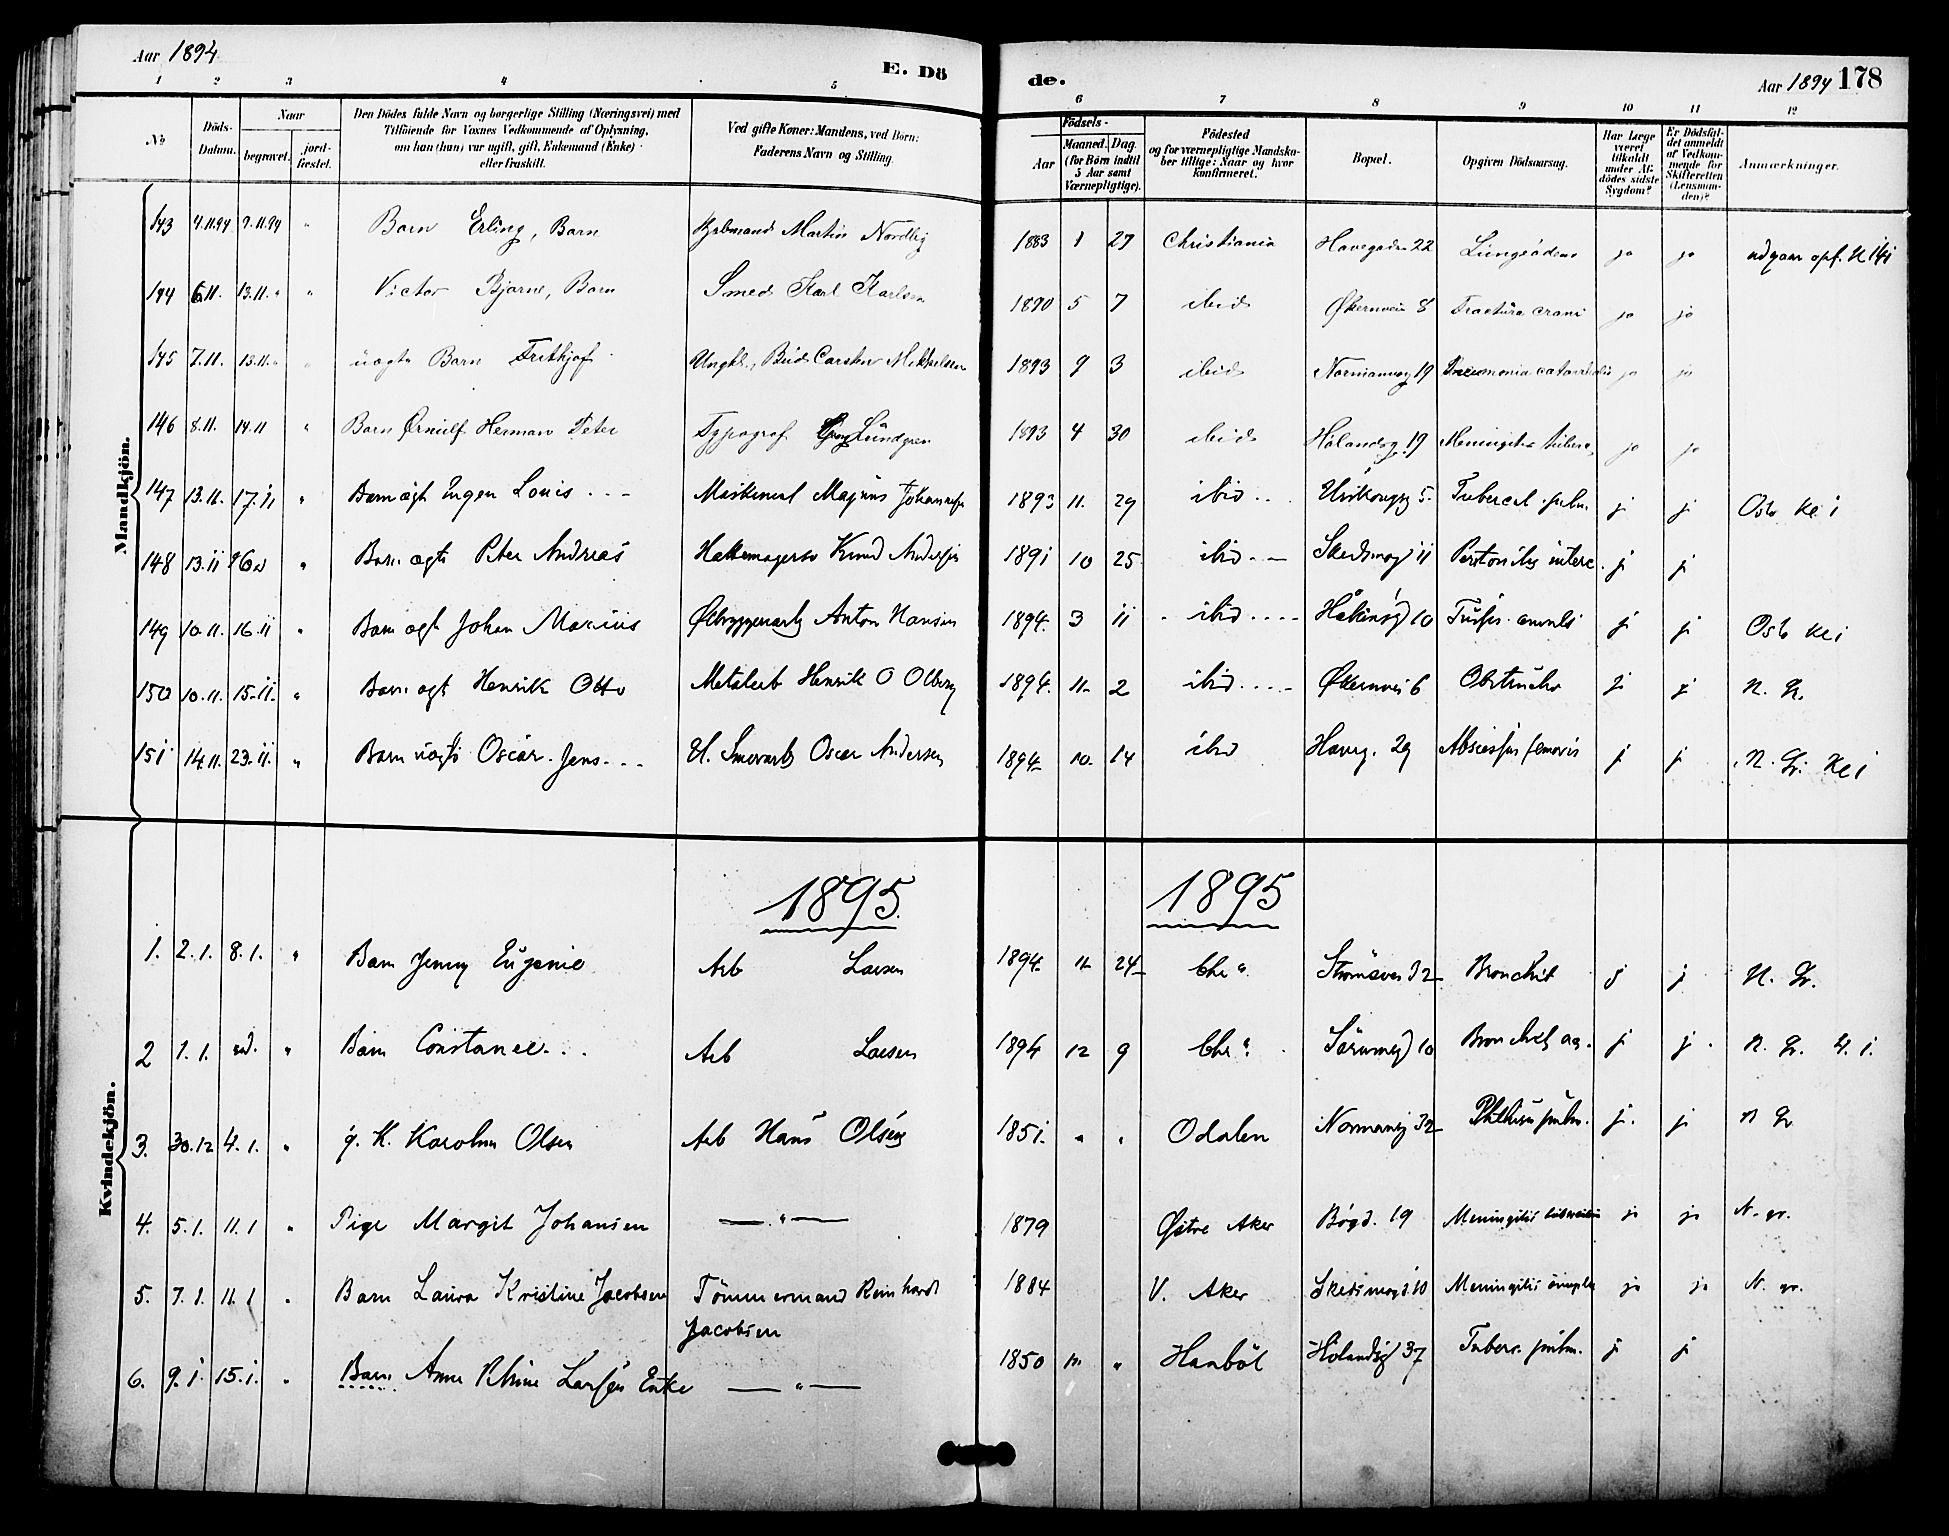 Aar 1894
E. Dö
de.
Aar 1894 178
1 2 3 4 5 6 7 8 9 10 11 12
No
Döds-
Datum.
Naar
begravet.
jord-
fæstet.
Den Dödes fulde Navn og borgerlige Stilling (Næringsvei) med
Tilföiende for Voxnes Vedkommende af Oplysning,
om han (hun) var ugift, gift, Enkemand (Enke)
eller fraskilt.
Ved gifte Koner: Mandens, ved Börn:
Faderens Navn og Stilling.
Födsels-
Aar
Maaned. Dag.
(for Börn indtil
5 Aar samt
Værnepligtige).
Födested
og for værnepligtige Mandska-
ber tillige: Naar og hvor
konfirmeret.
Bopæl.
Opgiven Dödsaarsag.
Har Læge
været
tilkaldt
under Af-
dödes sidste
Sygdom?
Er Dödsfal-
det anmeldt
af Vedkom-
mende for
Skifteretten
(Lensman-
den)?
Anmærkninger.
Mandkjön.
143 4.11.94 9.11.94 " Barn Erling, Barn Martin Nordby 1883 1 27 Christiania Havegaden 22 ja ja
144 6.11. 13.11. " " Victor Bjarne, Barn Smed Karl Karlsen 1890 5 7 ibid Økernveien 8 Fractura crani ja ja
145 7.11. 13.11. " " uægte Barn Frithjof Ungkl., Bud Carsten Mikkelsen 1893 9 3 ibid Normannsg 19 Pneumonia catarrhalis ja ja
146 8.11. 14.11 " Barn Ørnulf Herman Peter Typograf Lundgren 1893 4 30 ibid Hölandsg. 19 Meningitis tuberc. ja ja
147 13.11. 17.11 " Barn ægt Yngvar Louis Magnus Johannesen 1893 11. 29 ibid Ulvikensg 5. Tubercul. pulm. j j Oslo Kei
148 13.11 " Barn ægte Peter Andreas Knud Andersen 1891 10 25 ibid Skedsmog 11 j j
149 10.11. 16.11 " Barn ægt Johan Marius Ølbryggeriarb Anton Hansen 1894. 3 11 ibid 10 j j Oslo Kei
150 10.11. 15.11. " Barn ægt Henrik Otto Metalarb Henrik O Olberg 1894. 11 2 ibid Økernvei 6 j j N. Gr.
151 14.11. 23.11. " Barn uægte Oscar Jens U. Oscar Andersen 1894 10. 14 ibid Haveg. 29 Abscessus femoris j j N. Gr. Kei
Kvindekjön.
1895.
1895
1. 2.1. 8.1. " Barn Jenny Eugenie Arb Larsen 1894. 11 24 Chr a. Strömsvei 32 Bronchit j j N. Gr.
2 1.1. " Barn Constance Arb Larsen 1894 12 9 Chr a. Sörumsgd 10 Bronchit ac. j j. N. Gr.
3. 30.12 4.1. " g. K. Karoline Olsen Arb Hans Olsen 1851. " " Odalen Normansg 32 Phthisis pulm. j. j N Gr
4. 5.1. 11.1 " Pige Margit Johansen — " — 1879 Østre Aker Bögd. 19 Meningitis ja ja N. gr.
5. 7.1. 11.1 " Barn Laura Kristine Jacobsen Tömmermand Reinhardt 1884 V. Aker Skedsmogd. 10 Meningitis simplex ja ja N. gr.
Jacobsen
6. 9.1. 15.1. " Barn Anne Larsen Enke — " — 1850 " Hölandsgd 37 Tuberc. pulm. j j